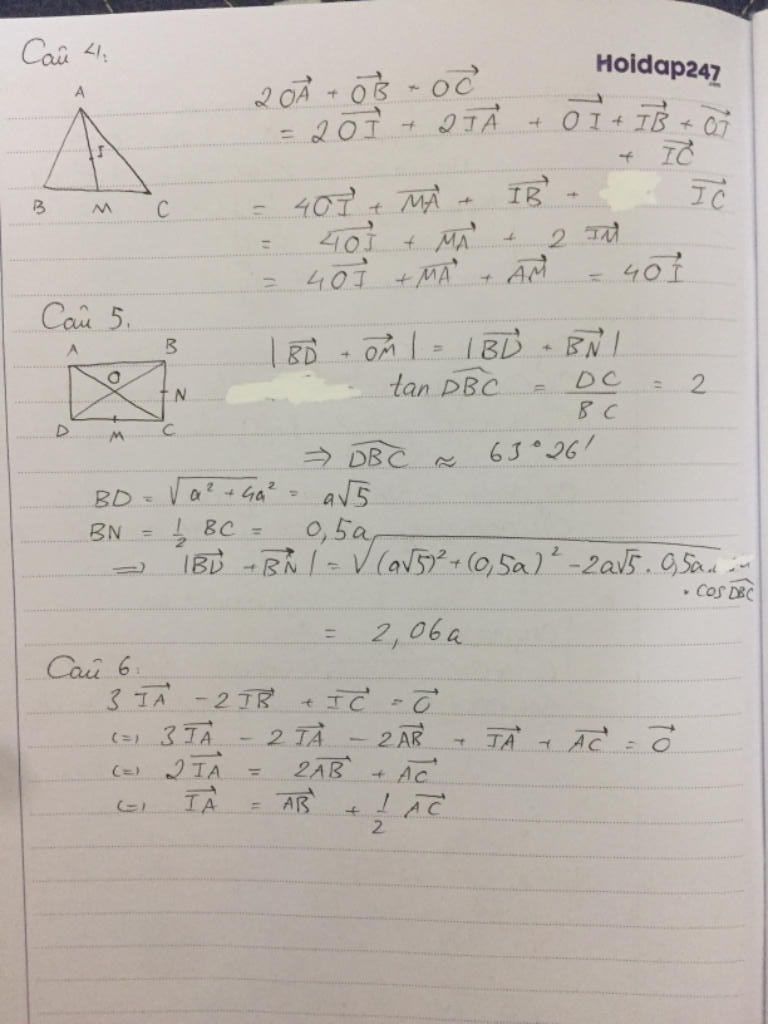 Câu 4:
Hoidap247
.com
A
I
B M C
2OA→ + OB→ + OC→
= 2OI→ + 2IA→ + OI→ + IB→ + OI→
+ IC→
= 4OI→ + MA→ + IB→ + IC→
= 4OI→ + MA→ + 2 IM→
= 4OI→ + MA→ + AM→ = 4OI→
Câu 5.
A B
O
N
D M C
|BD→ + OM→| = |BD→ + BN→|
tan DBC^ = DC/BC = 2
⇒ DBC^ ≈ 63°26'
BD = √(a² + 4a²) = a√5
BN = 1/2 BC = 0,5a
⇒ |BD→ + BN→| = √((a√5)² + (0,5a)² - 2a√5 . 0,5a
. cos DBC^
= 2,06a
Câu 6:
3IA→ - 2IB→ + IC→ = O→
(=) 3IA→ - 2IA→ - 2AB→ + IA→ + AC→ = O→
(=) 2IA→ = 2AB→ + AC→
(=) IA→ = AB→ + 1/2 AC→